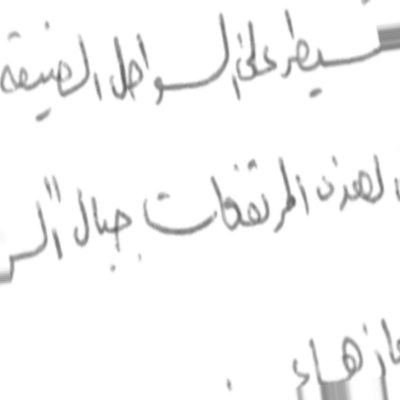 تسيطر على السواحل الضيقة
لهذه المرتفعات جبال "السر
ازهاء